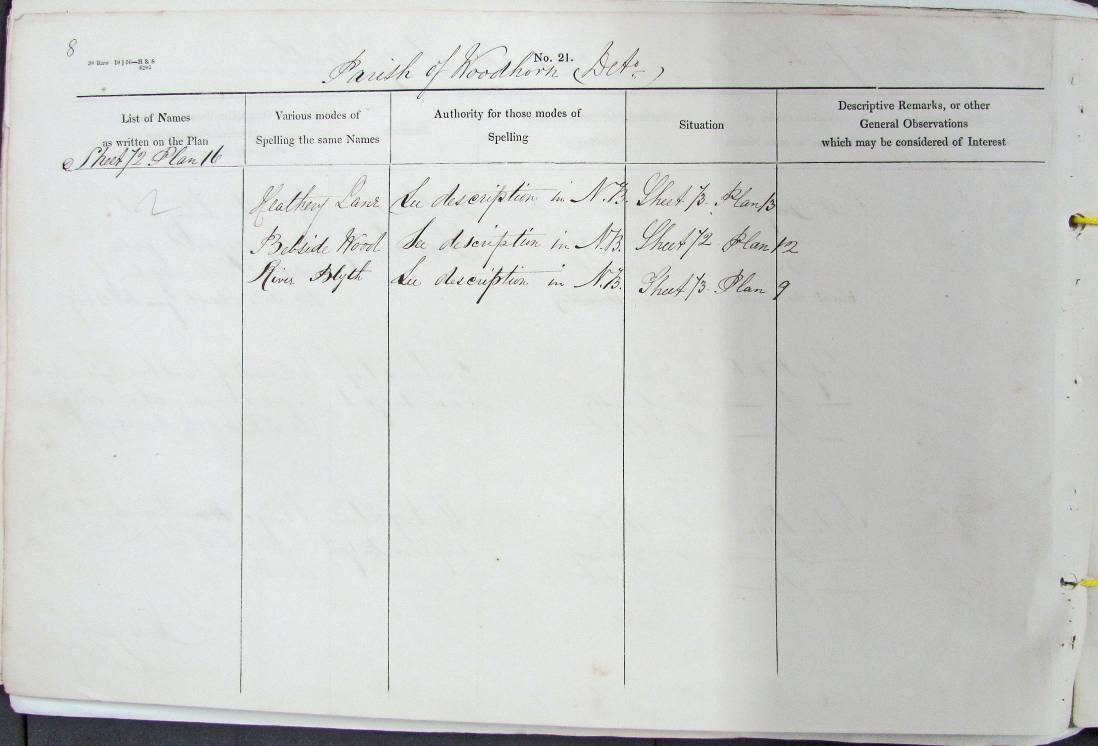 8
No. 21.
Parish of Woodhorn (Deta.)
List of Names
as written on the Plan
Various modes of
Spelling the same Names
Authority for those modes of
Spelling
Situation
Descriptive Remarks, or other
General Observations
which may be considered of Interest
Sheet 72 Plan 16
Heathery Lane See description in N.B. Sheet 73 Plan 13
Bebside Wood See description in N.B. Sheet 72 Plan 12
River Blyth See description in N.B. Sheet 73 Plan 9